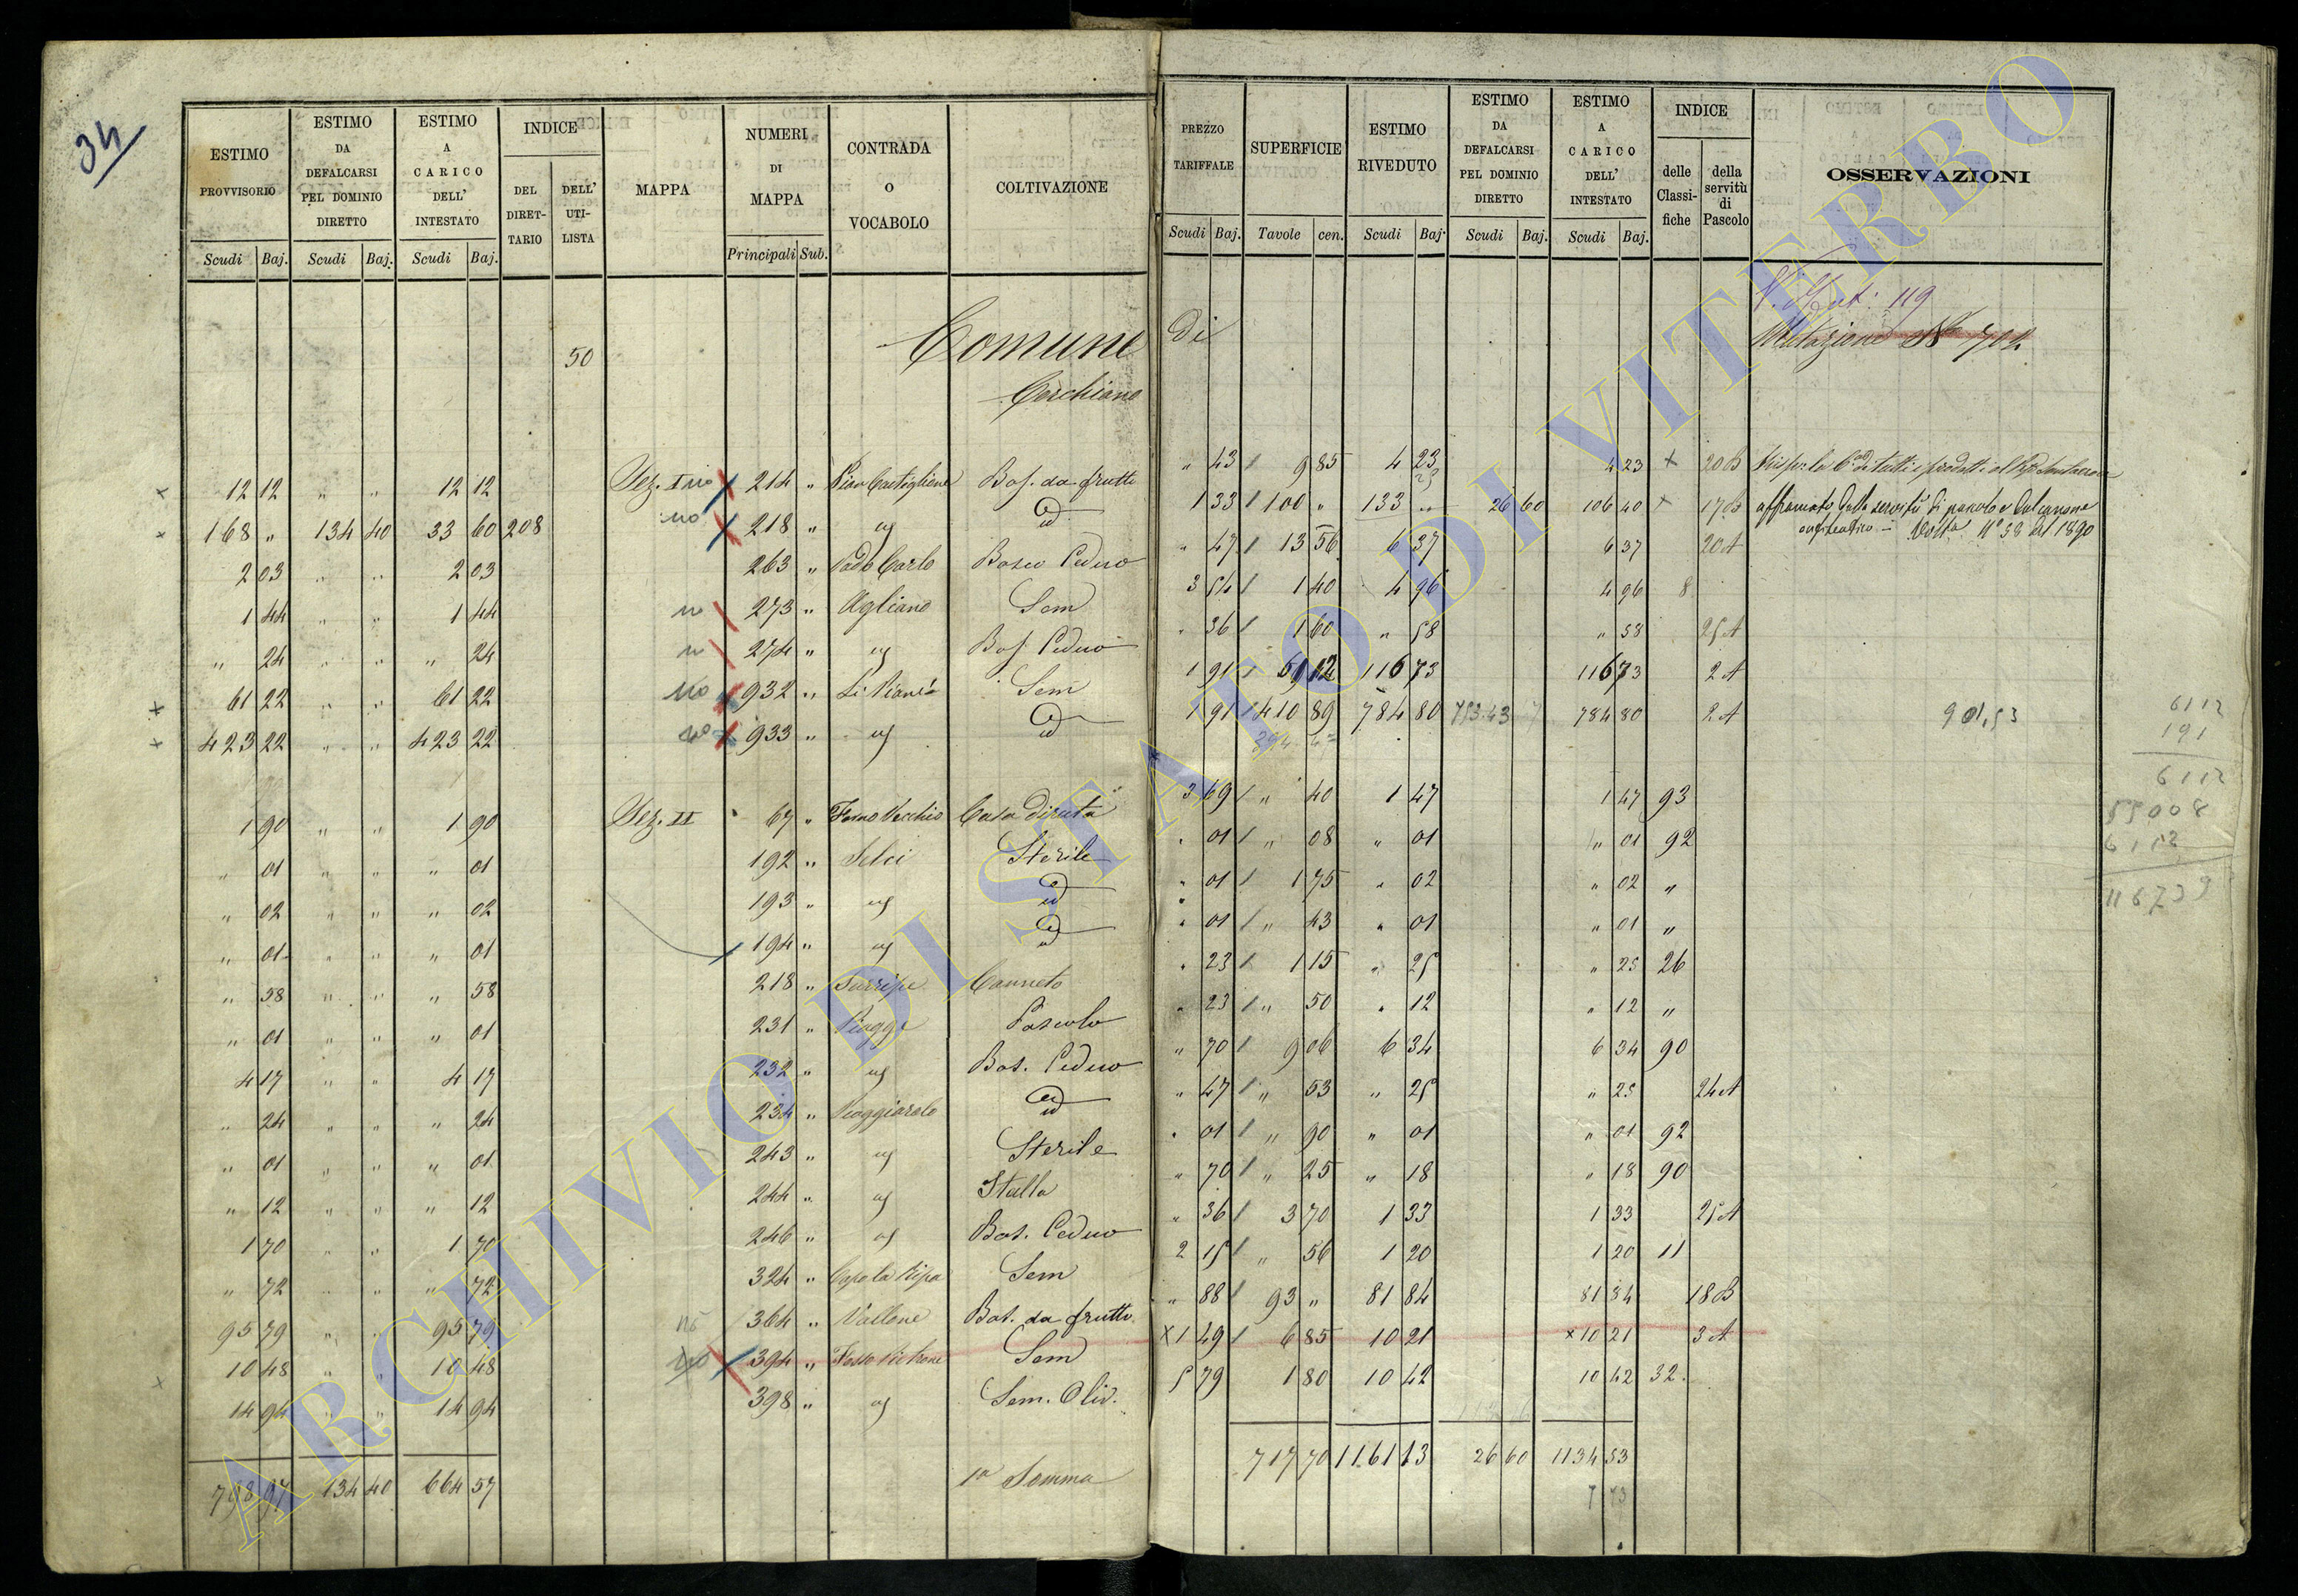 34
ESTIMO PROVVISORIO Scudi Baj.
ESTIMO DA DEFALCARSI PEL DOMINIO DIRETTO Scudi Baj.
ESTIMO A CARICO DELL' INTESTATO Scudi Baj.
INDICE DEL DIRETTARIO DELL' UTILISTA
MAPPA
NUMERI DI MAPPA Principali Sub.
CONTRADA O VOCABOLO
COLTIVAZIONE
PREZZO TARIFFALE Scudi Baj.
SUPERFICIE Tavole cen.
ESTIMO RIVEDUTO Scudi Baj.
ESTIMO DA DEFALCARSI PEL DOMINIO DIRETTO Scudi Baj.
ESTIMO A CARICO DELL' INTESTATO Scudi Baj.
INDICE delle Classifiche della servitù di Pascolo
OSSERVAZIONI
119
Mutazione N° 702
50 Comune Di
Corchiano
12 12 " " 12 12 Sez. I no 214 " Pian Castiglione Bos. da frutti " 43 9 85 4 23 4 23 + 20B
168 " 134 40 33 60 208 no 218 " id 1 33 100 " 133 " 26 60 106 40 + 17B affrancato dalla servitù di pascolo e dal canone
enfiteutico Volta N° 58 del 1890
2 03 " " 2 03 263 " Vado Carlo Bosco Ceduo " 47 13 56 6 37 6 37 20A
1 44 " " 1 44 273 " Agliano Sem 3 54 1 40 4 96 4 96 8
" 24 " " " 24 274 " Bos Ceduo " 36 1 60 " 58 " 58 25A
61 22 " " 61 22 no 932 " Li Piani Sem 1 91 61 12 116 73 116 73 2A
423 22 " " 423 22 933 " id 1 91 410 89 784 80 753.43 784 80 2A 901,53
6112
191
6112
55008
6112
116739
1 90 " " 1 90 Sez. II 67 " Forno Vecchio Casa diruta 3 69 " 40 1 47 1 47 93
" 01 " " " 01 192 " Selci Sterile " 01 " 08 " 01 " 01 92
" 02 " " " 02 193 " id " 01 1 75 " 02 " 02 "
" 01 " " " 01 194 " id " 01 " 43 " 01 " 01 "
" 58 " " " 58 218 " Canneto " 23 1 15 " 25 " 25 26
" 01 " " " 01 231 " Piagge Pascolo " 23 " 50 " 12 " 12 "
4 17 " " 4 17 232 " Bos. Ceduo " 70 9 06 6 34 6 34 90
" 24 " " " 24 234 " Piaggiarelo id " 47 " 53 " 25 " 25 24A
" 01 " " " 01 243 " Sterile " 01 " 90 " 01 " 01 92
" 12 " " " 12 244 " Stalla " 70 " 25 " 18 " 18 90
1 70 " " 1 70 246 " Bos. Ceduo " 36 3 70 1 33 1 33 25A
" 72 " " " 72 324 " Capo la Ripa Sem 2 15 " 56 1 20 1 20 11
95 79 " " 95 79 no 364 " Vallone Bos. da frutto " 88 93 " 81 84 81 84 18B
10 48 " " 10 48 394 " Sem 1 49 6 85 10 21 10 21 3A
14 94 " " 14 94 398 " Sem. Oliv. 5 79 1 80 10 42 10 42 32
798 97 134 40 664 57 1a Somma 717 70 1161 13 26 60 1134 53
ARCHIVIO DI STATO DI VITERBO